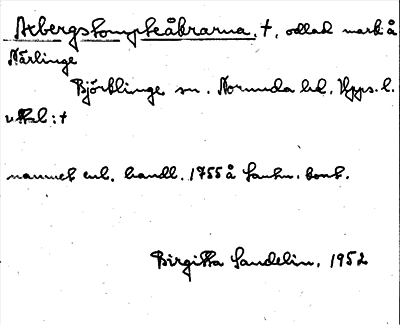 Arbergstompteåkrarna, †, odlad mark å
Närlinge
Björklinge sn. Norunda hd. Upps. l.
uttal: †
namnet enl. handl. 1755 å Lantm. kont.
Birgitta Sandelin, 1952